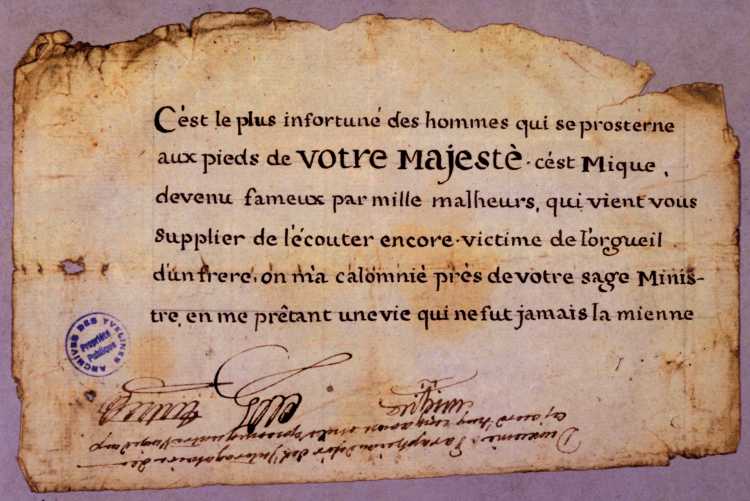 C'ést le plus infortuné des hommes qui se prosterne
aux pieds de votre Majestè. cést Mique,
devenu fameux par mille malheurs, qui vient vous
supplier de lécouter encore. victime de lorgueil
dun frere, on m'a calomniè près de votre sage Minis-
tre, en me prêtant une vie qui ne fut jamais la mienne
ARCHIVES DES YVELINES
Propriété
Publique